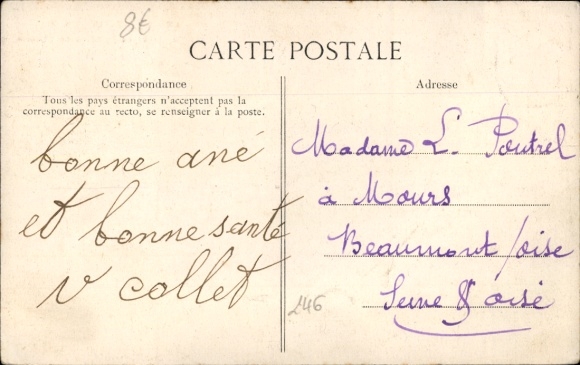 8€
CARTE POSTALE
Correspondance
Tous les pays étrangers n'acceptent pas la
correspondance au recto, se renseigner à la poste.
bonne ané
et bonne santé
v collet
Adresse
Madame L. Poutrel
à Mours
Beaumont /oise
Seine & oise
246